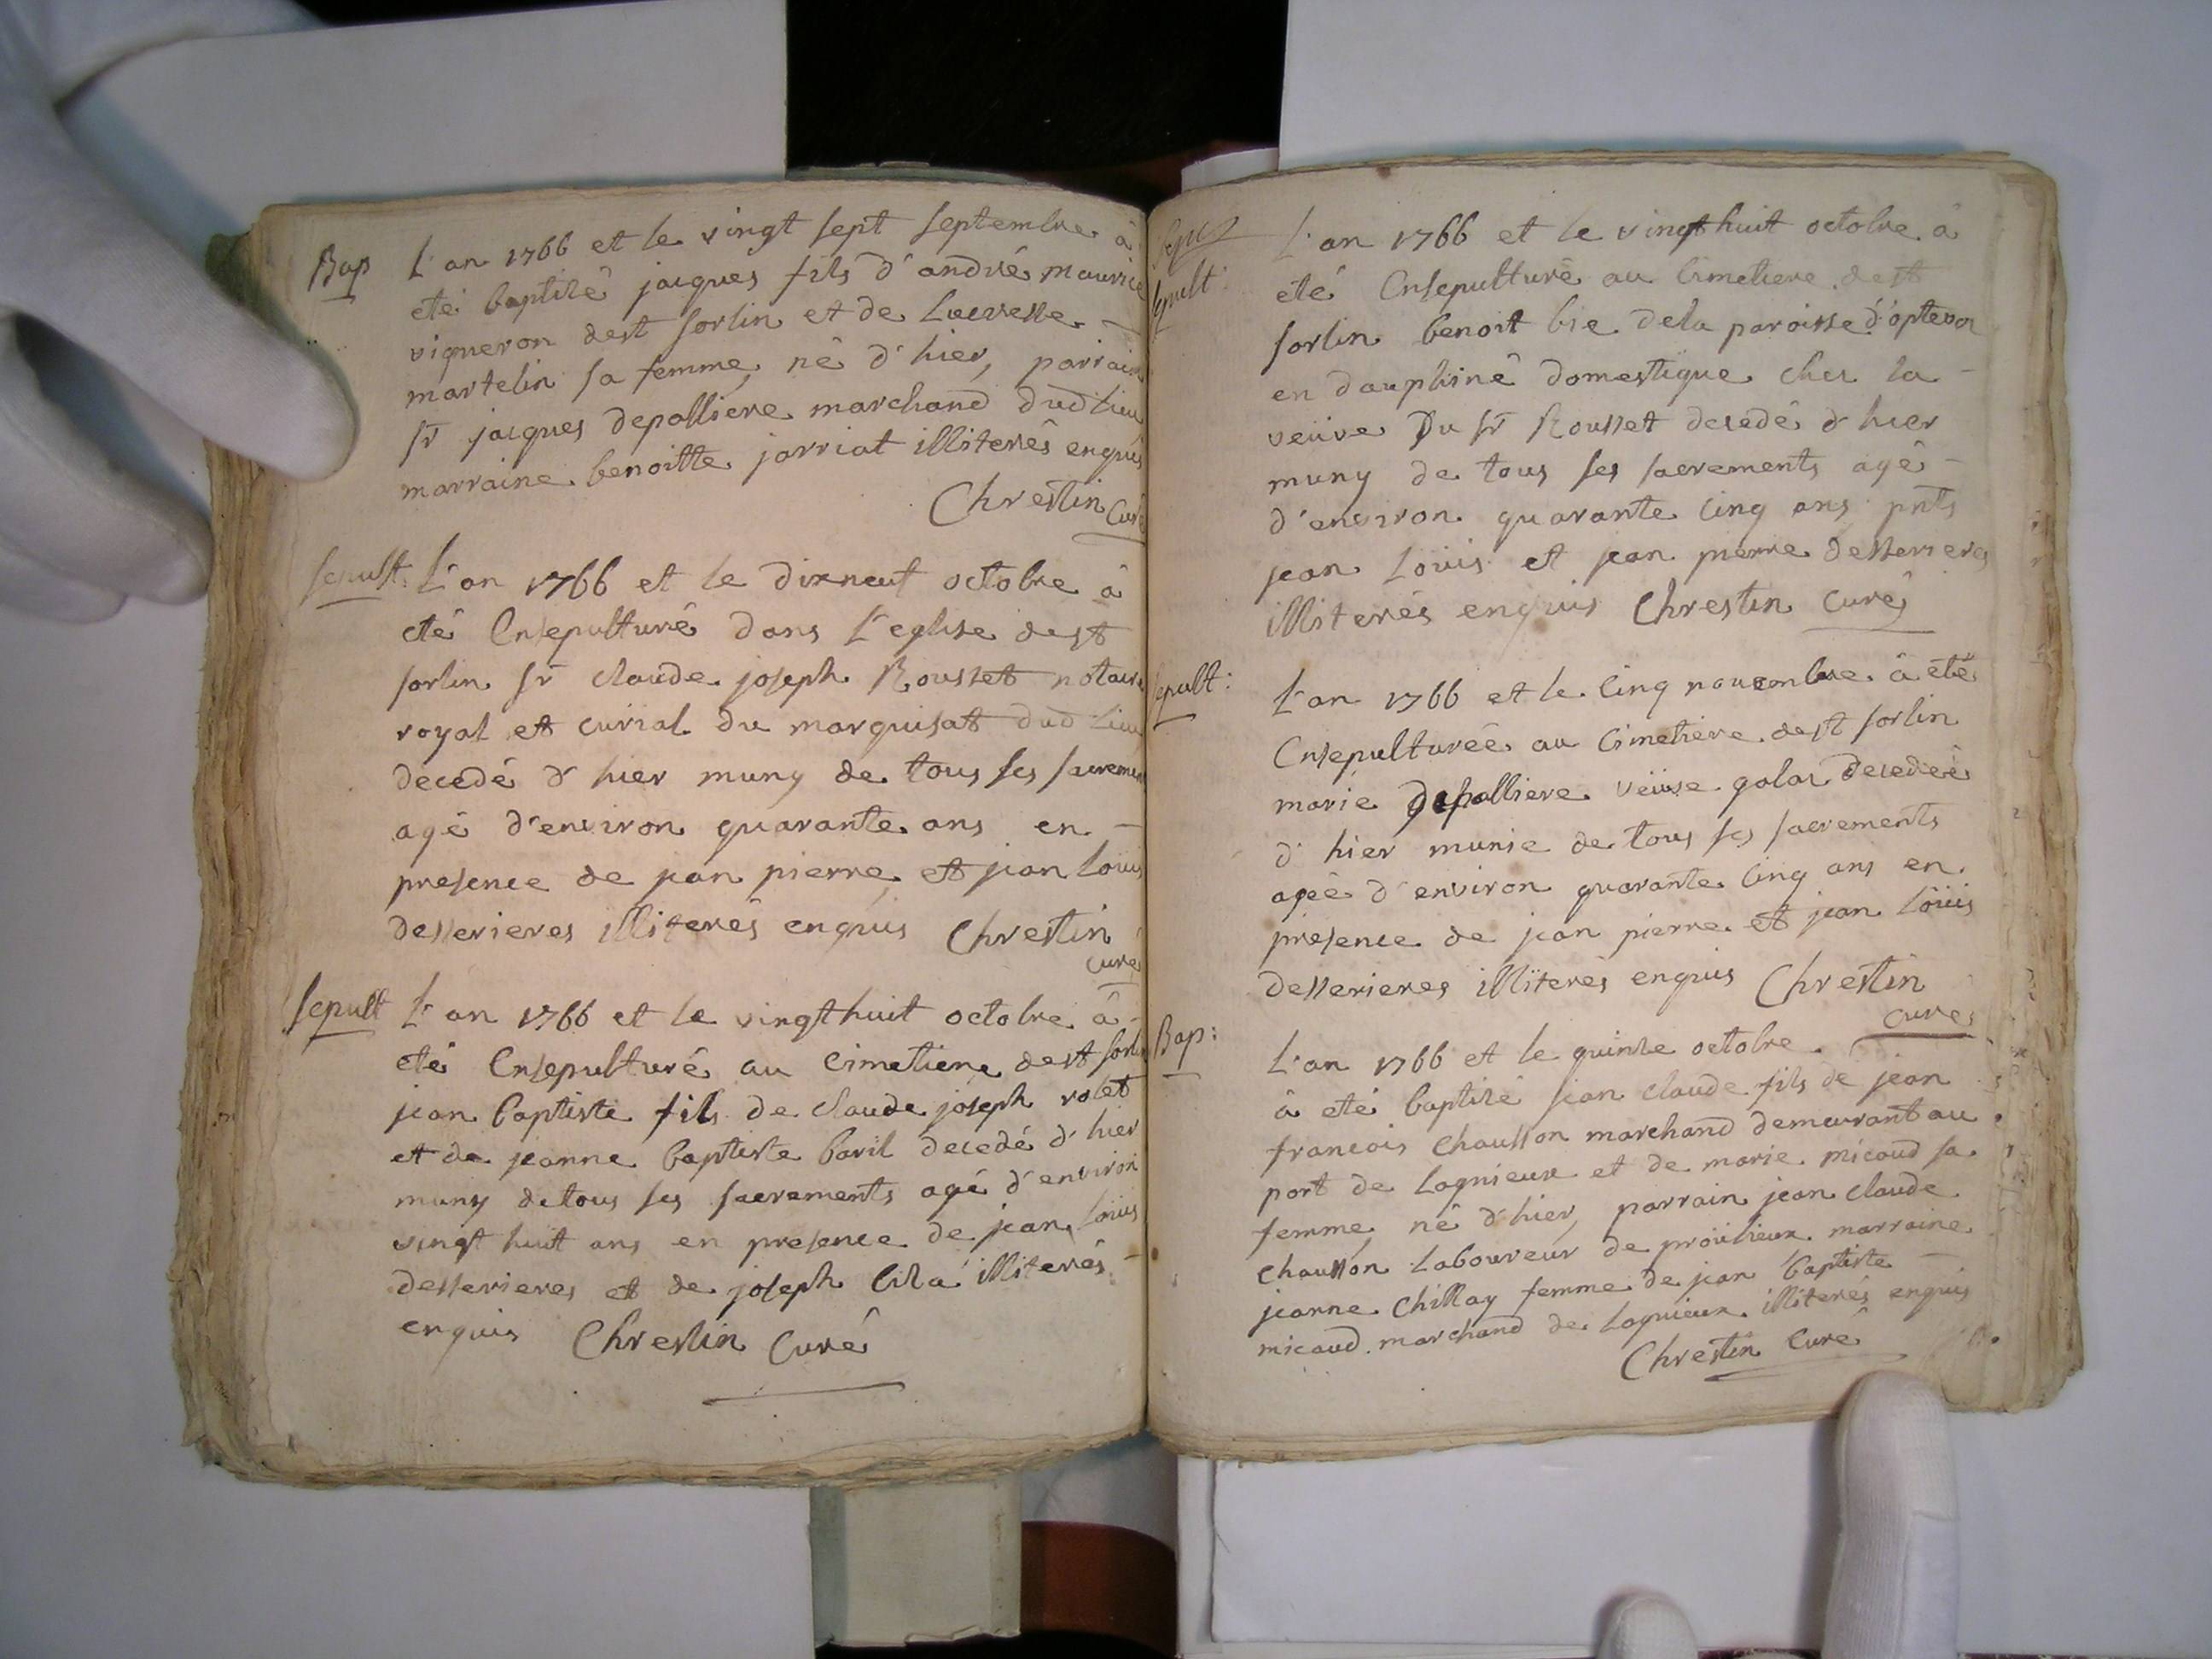 Bap
L'an 1766 et le vingt sept septembre â
eté baptisé jacques fils d'andré maurice
vigneron dest sorlin et de Lucresse
martelin sa femme, né d'hier, parrain
sr jacques depalliere marchand dud lieu
marraine benoitte jarriat illiterés enquis
Chrestin Curé
sepult: L'an 1766 et le dixneuf octobre â
eté Ensepulturé dans L'eglise dest
sorlin sr claude joseph Rousset notaire
royal et curial du marquisat dud lieu
decedé d'hier muny de tous ses sacrement
agé d'environ quarante ans en
presence de jean pierre et jean Loüis
desserieres illiterés enquis Chrestin
curé
sepult L'an 1766 et le vingthuit octobre â
eté Ensepulturé au Cimetiere dest sorlin
jean baptiste fils de claude joseph rolet
et de jeanne baptiste baril decedé d'hier
muny de tous ses sacrements agé d'environ
vingt huit ans en presence de jean loüis
desserieres et de joseph illiterés
enquis Chrestin Curé
sepult:
L'an 1766 et le vingthuit octobre â
eté Ensepulturé au Cimetiere dest
sorlin benoit bie dela paroisse d'optevoz
en dauphiné domestique chez la
veüve Du sr Rousset decedé d'hier
muny de tous ses sacrements agé
d'environ quarante cinq ans pnts
jean Loüis et jean pierre desserieres
illiterés enquis Chrestin Curé
sepult:
L'an 1766 et le Cinq novembre â été
Ensepulturée au Cimetiere dest sorlin
marie depalliere veüve decedée
d'hier munie de tous ses sacrements
agée d'environ quarante cinq ans en
presence de jean pierre et jean loüis
desserieres illiterés enquis Chrestin
curé
Bap:
L'an 1766 et le quinze octobre
â eté baptisé jean claude fils de jean
francois chausson marchand demeurant au
port de Lagnieux et de marie micoud sa
femme, né d'hier, parrain jean claude
chausson Laboureur de proülieux marraine
jeanne Chillay femme de jean baptiste
micoud marchand de Lagnieux illiterés enquis
Chrestin Curé